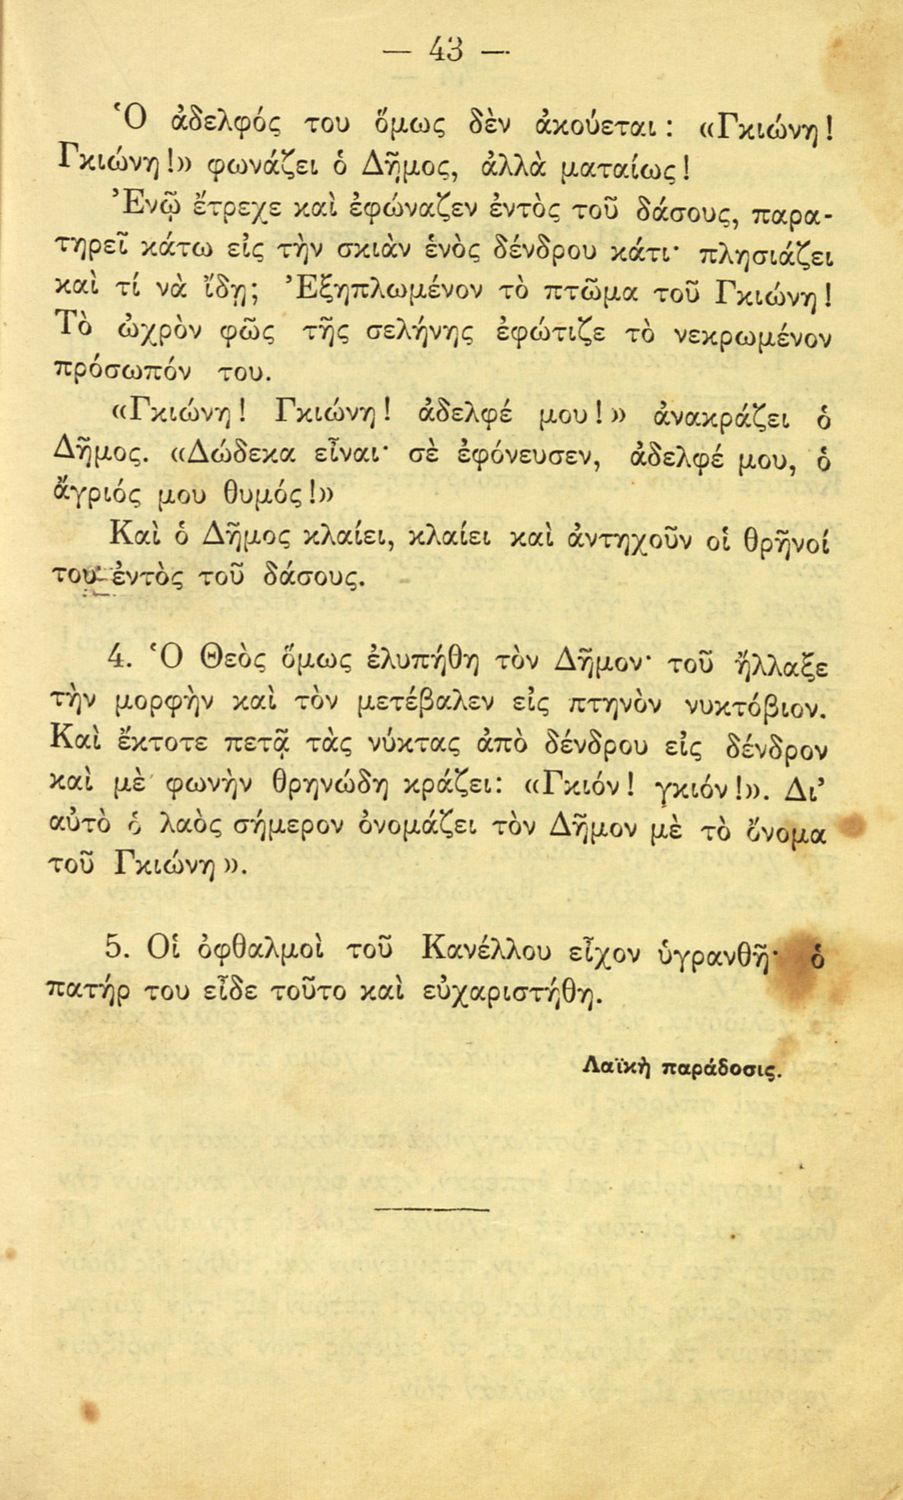 — 43 —
Ὁ ἀδελφός του ὅμως δὲν ἀκούεται: «Γκιώνη!
Γκιώνη!» φωνάζει ὁ Δῆμος, ἀλλὰ ματαίως!
Ἐνῷ ἔτρεχε καὶ ἐφώναζεν ἐντὸς τοῦ δάσους, παρα-
τηρεῖ κάτω εἰς τὴν σκιὰν ἑνὸς δένδρου κάτι· πλησιάζει
καὶ τί νὰ ἴδῃ; Ἐξηπλωμένον τὸ πτῶμα τοῦ Γκιώνη!
Τὸ ὠχρὸν φῶς τῆς σελήνης ἐφώτιζε τὸ νεκρωμένον
πρόσωπόν του.
«Γκιώνη! Γκιώνη! ἀδελφέ μου!» ἀνακράζει ὁ
Δῆμος. «Δώδεκα εἶναι· σὲ ἐφόνευσεν, ἀδελφέ μου, ὁ
ἄγριός μου θυμός!»
Καὶ ὁ Δῆμος κλαίει, κλαίει καὶ ἀντηχοῦν οἱ θρῆνοί
του ἐντὸς τοῦ δάσους.
4. Ὁ Θεὸς ὅμως ἐλυπήθη τὸν Δῆμον· τοῦ ἤλλαξε
τὴν μορφὴν καὶ τὸν μετέβαλεν εἰς πτηνὸν νυκτόβιον.
Καὶ ἔκτοτε πετᾷ τὰς νύκτας ἀπὸ δένδρου εἰς δένδρον
καὶ μὲ φωνὴν θρηνώδη κράζει: «Γκιόν! γκιόν!». Δι’
αὐτὸ ὁ λαὸς σήμερον ὀνομάζει τὸν Δῆμον μὲ τὸ ὄνομα
τοῦ Γκιώνη».
5. Οἱ ὀφθαλμοὶ τοῦ Κανέλλου εἶχον ὑγρανθῆ· ὁ
πατήρ του εἶδε τοῦτο καὶ εὐχαριστήθη.
Λαϊκὴ παράδοσις.